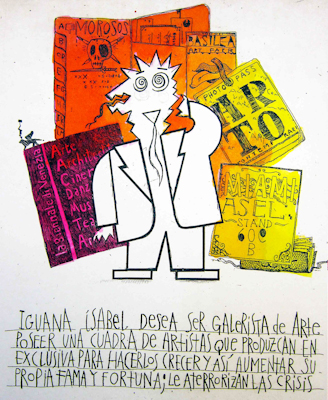 MOROSOS
BASILEA
ART FERIE
PHOTO PASS
ARTO
La Biennale di Venezia
Arte
Architett
Cine
Dan
Mus
Tea
A
MIAMI
ASEL
STAND
OC
B
IGUANA ISABEL, DESEA SER GALERISTA de ARTE.
POSEER UNA CUADRA DE ARTISTAS QUE PRODUZCAN EN
EXCLUSIVA PARA HACERLOS CRECER Y ASÍ AUMENTAR SU
PROPIA FAMA Y FORTUNA; LE ATERRORIZAN LAS CRISIS